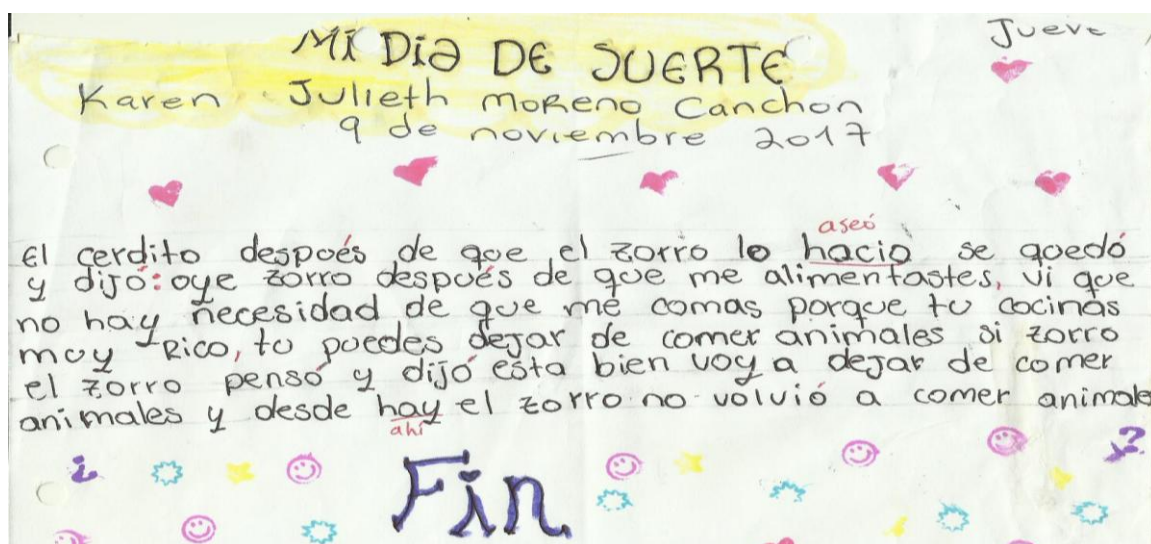 Jueve
MI DiA DE SUERTE
Karen Julieth MoReno Canchon
9 de noviembre 2017
aseó
El cerdito después de que el zorro lo hacio se quedó
y dijó: oye zorro después de que me alimentastes, vi que
no hay necesidad de que me comas porque tu cocinas
muy Rico, tu puedes dejar de comer animales si zorro
el zorro pensó y dijó esta bien voy a dejar de comer
animales y desde hay el zorro no volvió a comer animale
ahí
¿ ?
Fin